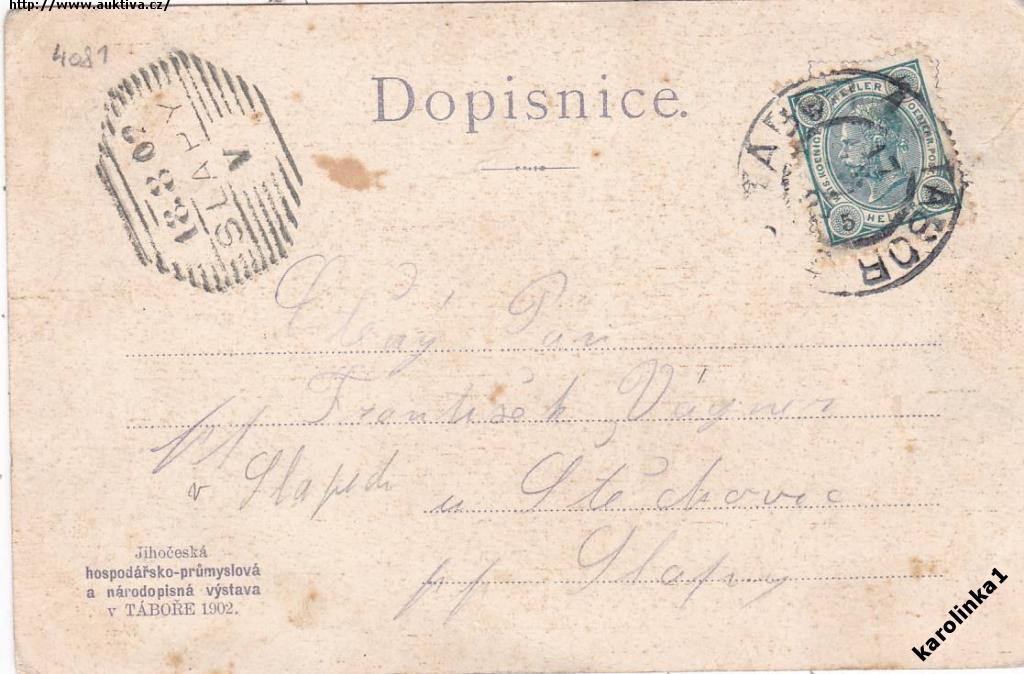 http://www.auktiva.cz/
4081
Dopisnice.
SLAPY
18 8 02
TÁBOR TABOR
HELLER
5 HELLER
Ctěný Pan
František Vágner
v Slapech
u Štěchovic
pp Slapy
Jihočeská
hospodářsko-průmyslová
a národopisná výstava
v TÁBOŘE 1902.
karolinka1